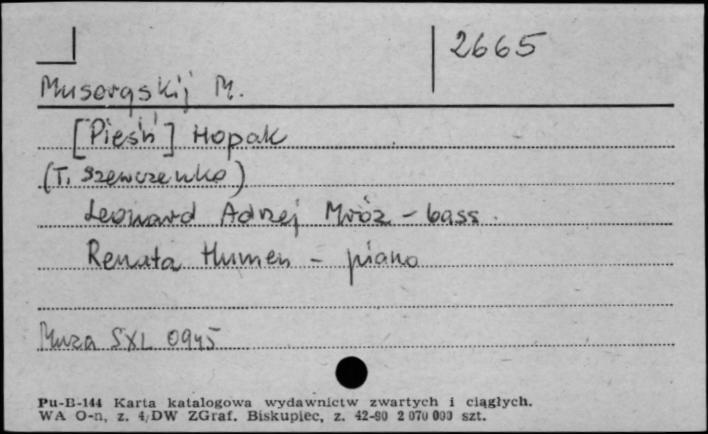 2665
Musorgskij M.
[Pieśń] Hopak
(T. Szewczenko)
Leonard Adrzej Mróz - bass.
Renata Humen - piano
Muza SXL 0945
Pu-B-144 Karta katalogowa wydawnictw zwartych i ciągłych.
WA O-n, z. 4/DW ZGraf. Biskupiec, z. 42-80 2 070 000 szt.